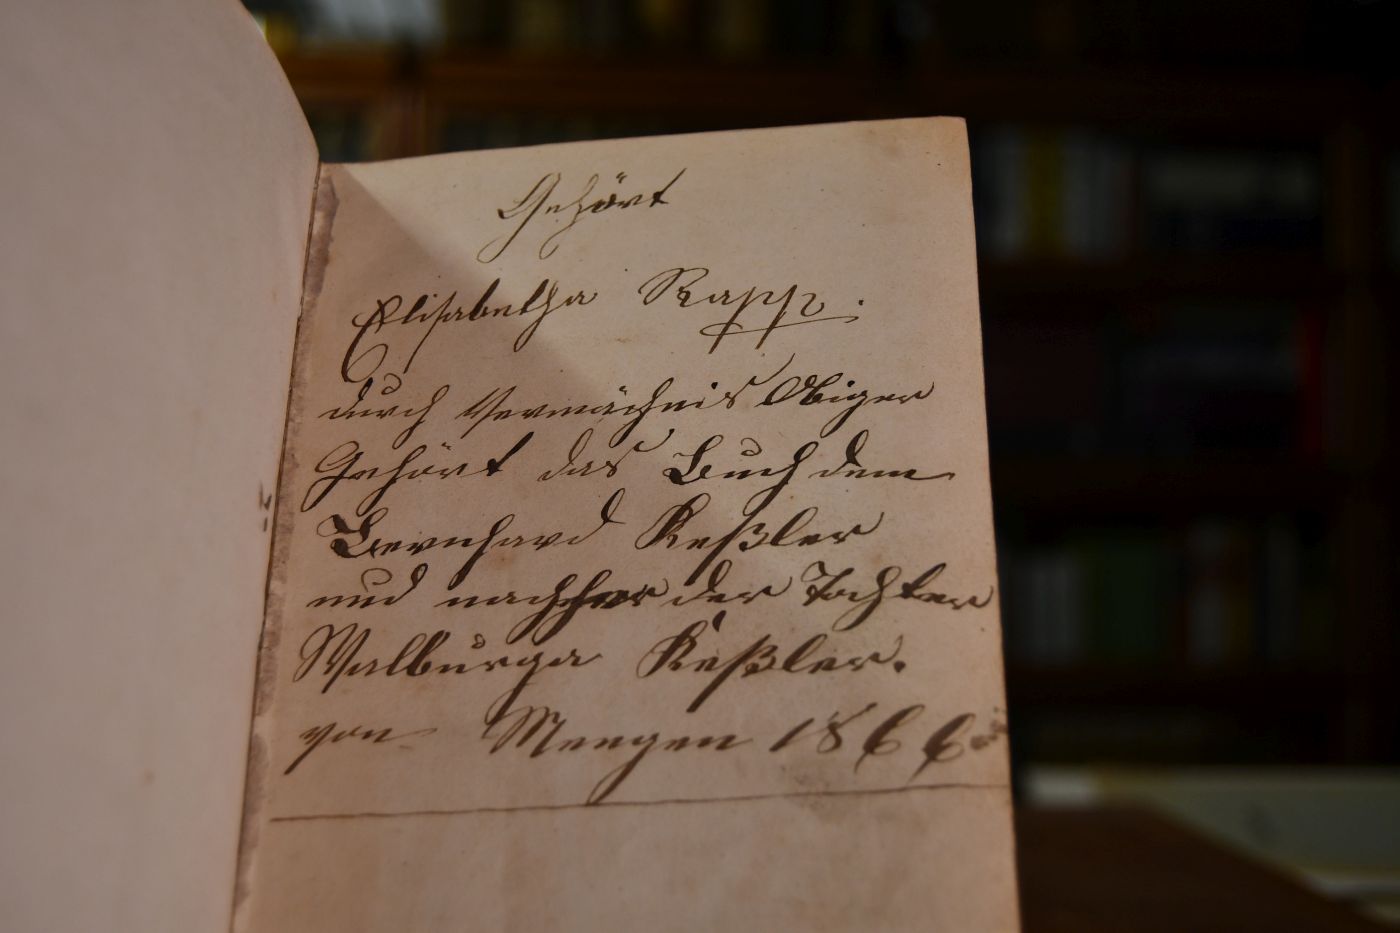 Gehört
Elisabetha Rapp.
durch Vermächnis Obiger
Gehört das Buch dem
Bernhard Keßler
und nachher der Tochter
Walburga Keßler.
von Mengen 1866